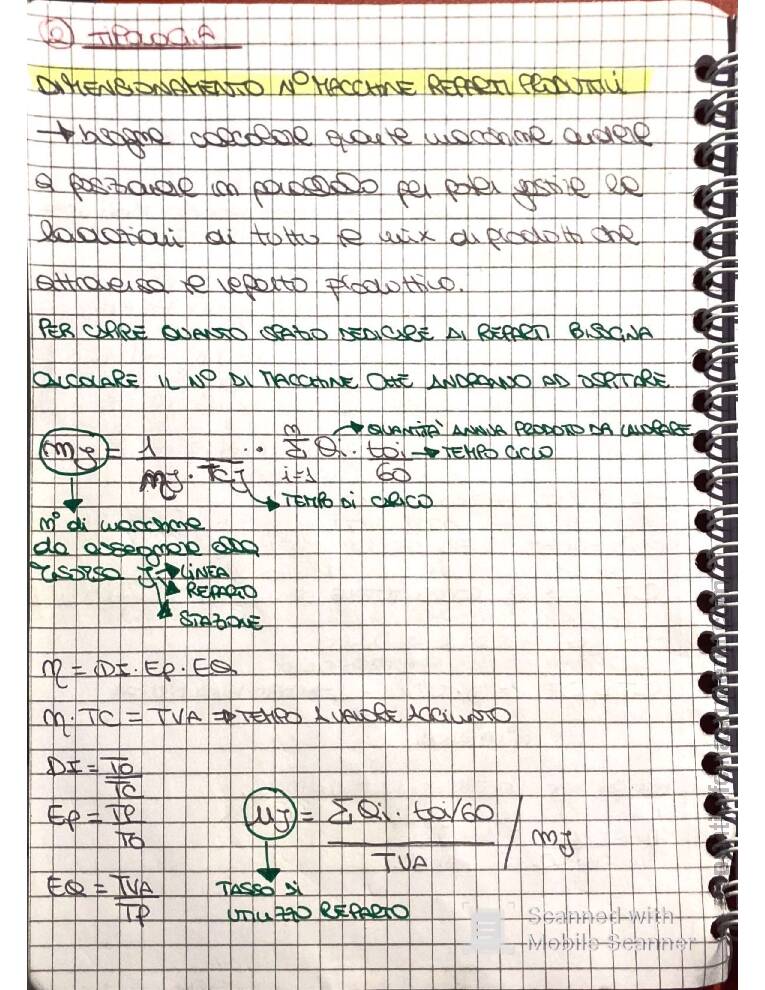 ② TIPOLOGIA
DIMENSIONAMENTO N° MACCHINE REPARTI PRODUTTIVI
→ bisogna calcolare quante macchine avere
e posizionare in parallelo per poter gestire le
lavorazioni di tutto il mix di prodotti che
attraversa il reparto produttivo.
PER CAPIRE QUANTO SPAZIO DEDICARE AI REPARTI BISOGNA
CALCOLARE IL N° DI MACCHINE CHE ANDRANNO AD OSPITARE
mj = 1 / (ηj · TCj) · · Σ(i=1, n) Qi · toi / 60
→ QUANTITA' ANNUA PRODOTTO DA LAVORARE
→ TEMPO CICLO
→ TEMPO DI CARICO
n° di macchine
da assegnare alla
risorsa j → LINEA
→ REPARTO
→ STAZIONE
η = DI · EP · EQ
η · TC = TVA ⇒ TEMPO A VALORE AGGIUNTO
DI = TO / TC
EP = TP / TO
μj = Σ Qi · toi/60 / TVA / mj
EQ = TVA / TP
TASSO DI
UTILIZZO REPARTO
Scanned with
Mobile Scanner